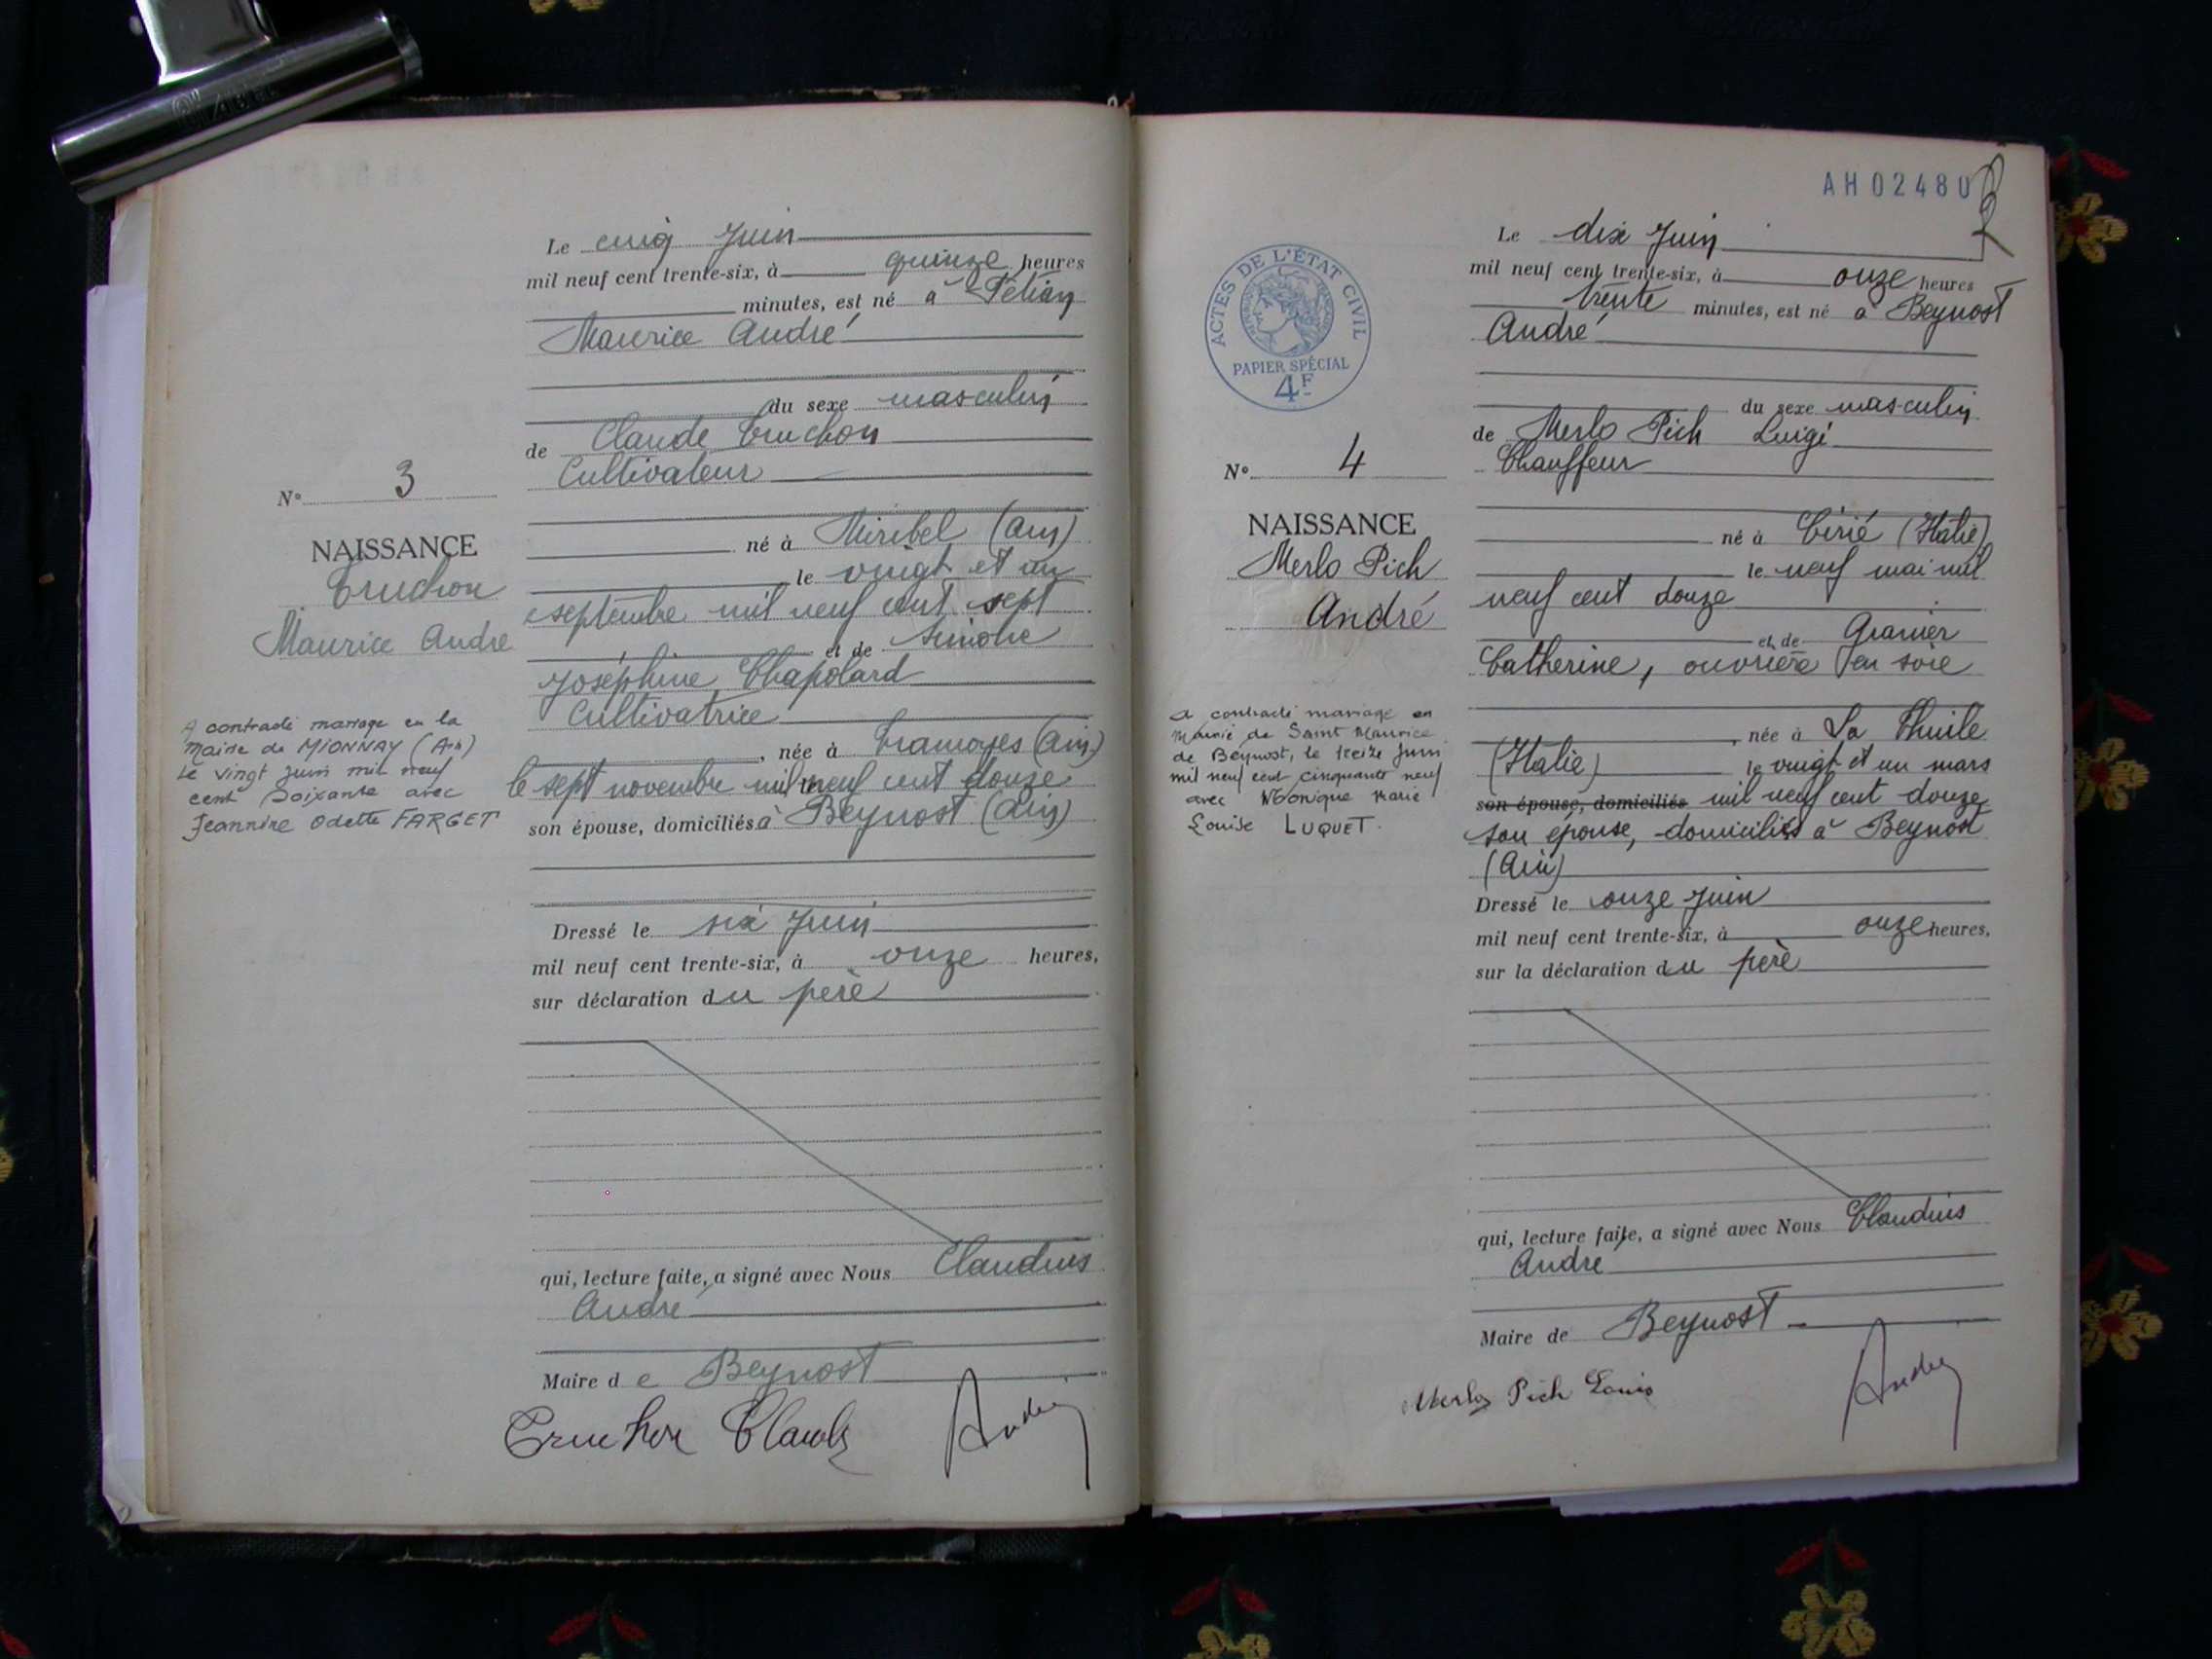 Le cinq Juin
mil neuf cent trente-six, à quinze heures
minutes, est né à
Maurice André
du sexe masculin
de Claude Truchon
Cultivateur
N° 3
né à Miribel (Ain)
NAISSANCE
le vingt et un
Truchon
septembre mil neuf cent sept
Maurice André
et de Simone
Joséphine Chapolard
Cultivatrice
A contracté mariage en la
Mairie de MIONNAY (Ain)
Le vingt Juin mil neuf
cent soixante avec
Jeannine Odette FARGET
, née à Tramoyes (Ain)
le sept novembre mil neuf cent douze
son épouse, domiciliés à Beynost (Ain)
Dressé le six Juin
mil neuf cent trente-six, à onze heures,
sur déclaration du père
qui, lecture faite, a signé avec Nous Claudius
André
Maire de Beynost
Truchon Claude André
AH02480
ACTES DE L'ÉTAT CIVIL
PAPIER SPÉCIAL
4F
Le dix Juin
mil neuf cent trente-six, à onze heures
trente minutes, est né à Beynost
André
du sexe masculin
de Merlo Pich Luigi
Chauffeur
N° 4
NAISSANCE
Merlo Pich
André
né à Cirié (Italie)
le neuf mai mil
neuf cent douze
et de Granier
Catherine, ouvrière en soie
a contracté mariage en
Mairie de Saint Maurice
de Beynost, le treize Juin
mil neuf cent cinquante neuf
avec Monique Marie
Louise LUQUET.
, née à La Thuile
(Italie) le vingt et un mars
son épouse, domiciliés mil neuf cent douze
son épouse, domiciliés à Beynost
(Ain)
Dressé le onze Juin
mil neuf cent trente-six, à onze heures,
sur la déclaration du père
qui, lecture faite, a signé avec Nous Claudius
André
Maire de Beynost
Merlo Pich Louis André